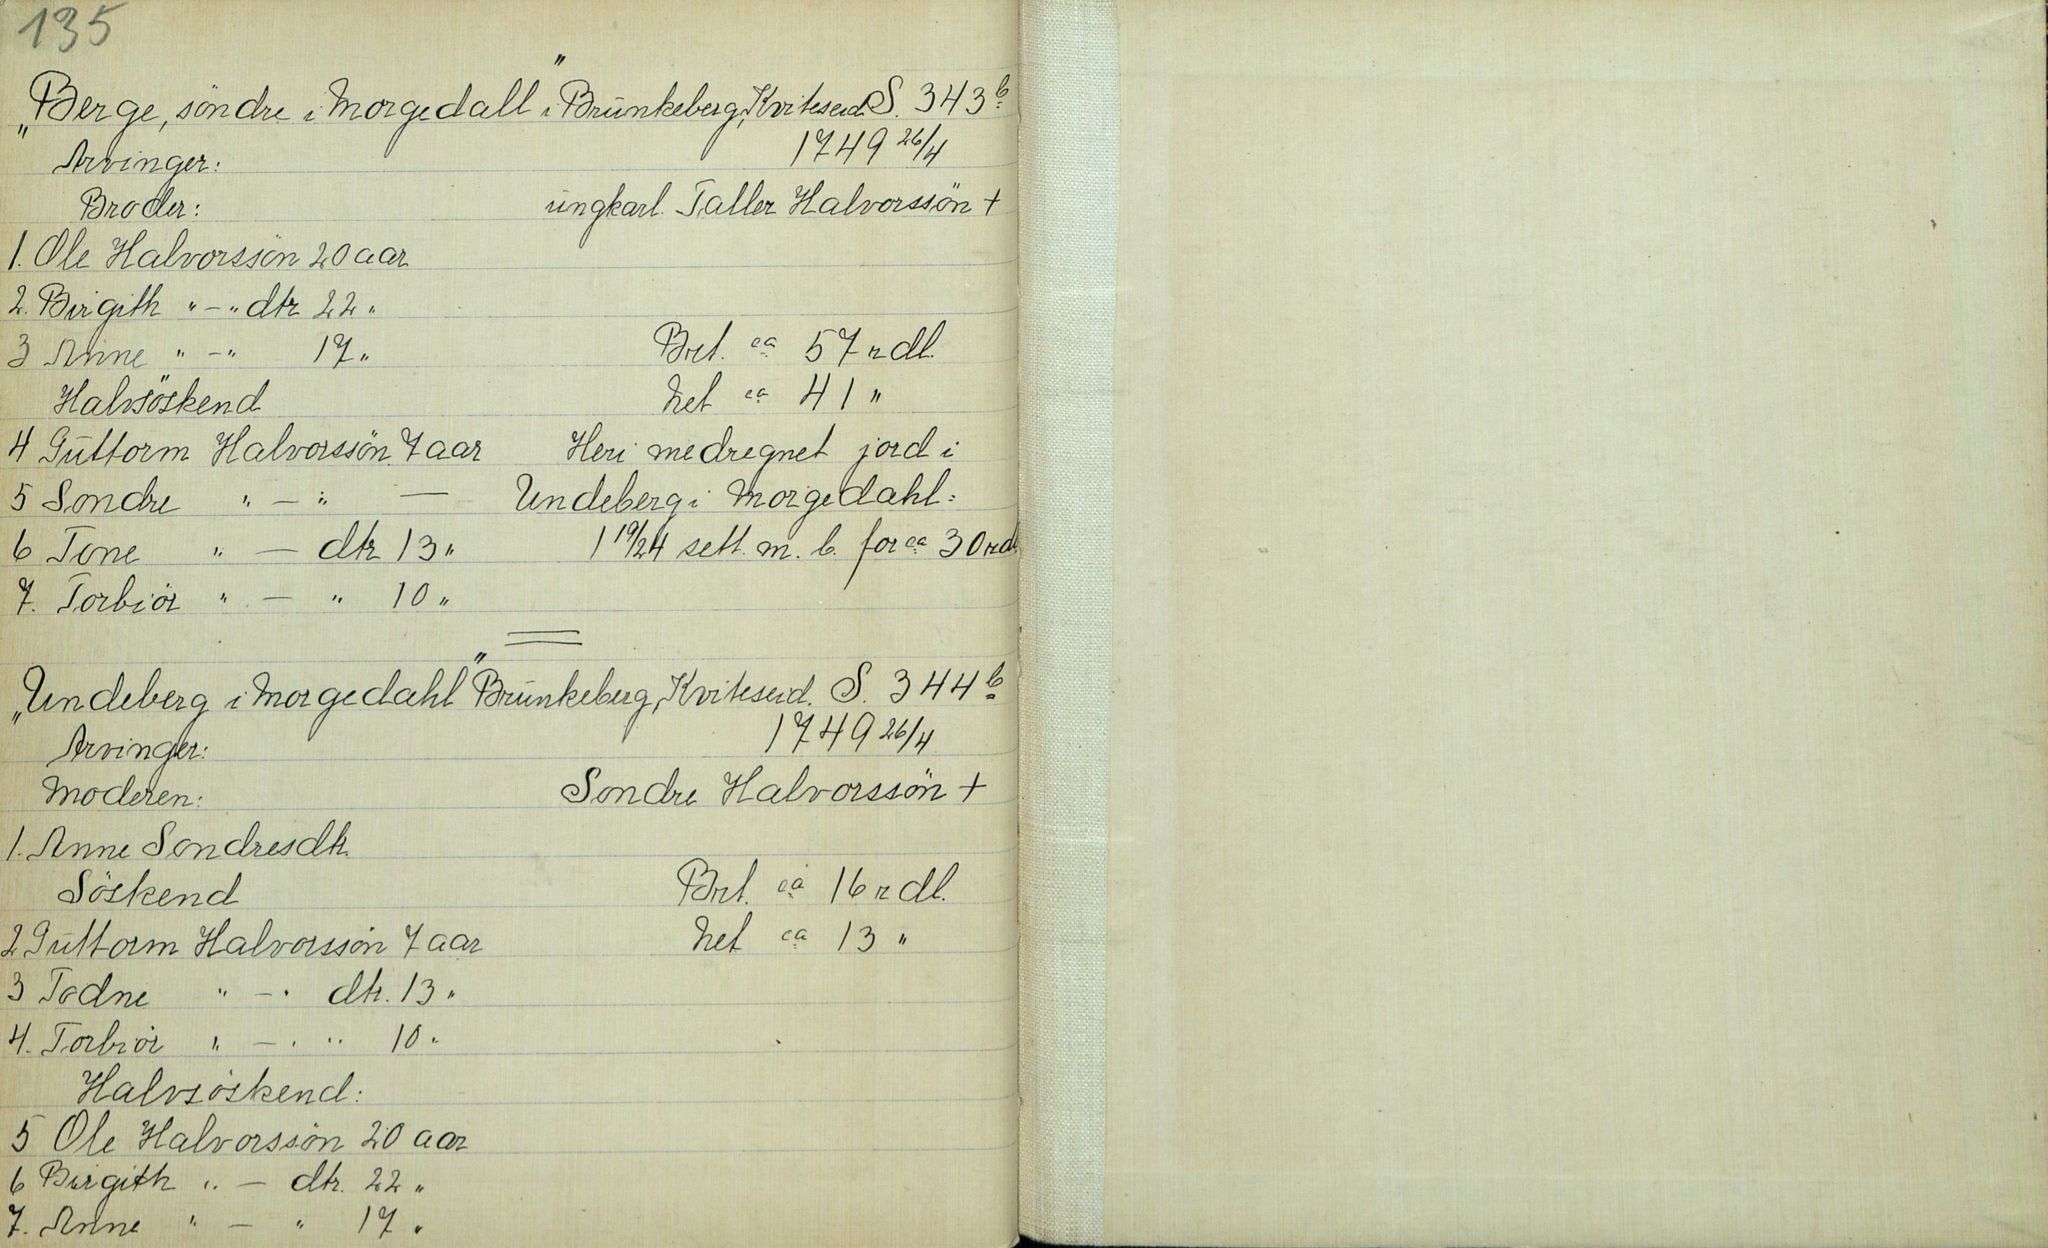 135
„Berge, söndre i Morgedall" i Brünkeberg, Kviteseid S. 343 b
Arvinger: 1749 26/4
Broder: üngkarl. Taller Halvorssön +
1. Ole Halvorssön 20 aar
2. Birgith " - " dtr 22 "
3 Anne " - " 17 " Brt. ca 57 rdl.
Halvsöskend Net ca 41 "
4 Güttorm Halvorssön 7 aar Heri medregnet jord i
5 Sondre " - " — Undeberg i Morgedahl:
6 Tone " - dtr 13 " 1 19/24 sett. m. b. for ca 30 rdl
7. Torbiör " - " 10 "
„Undeberg i Morgedahl" Brünkeberg, Kviteseid. S. 344 b
Arvinger: 1749 26/4
Moderen: Sondre Halvorssön +
1. Anne Sondresdtr.
Söskend Brt. ca 16 rdl.
2 Güttorm Halvorssön 7 aar Net ca 13 "
3 Todne " - " dtr. 13 "
4. Torbiör " - " " 10 "
Halvsöskend:
5 Ole Halvorssön 20 aar
6 Birgith " - dtr. 22 "
7. Anne " - " 17 "